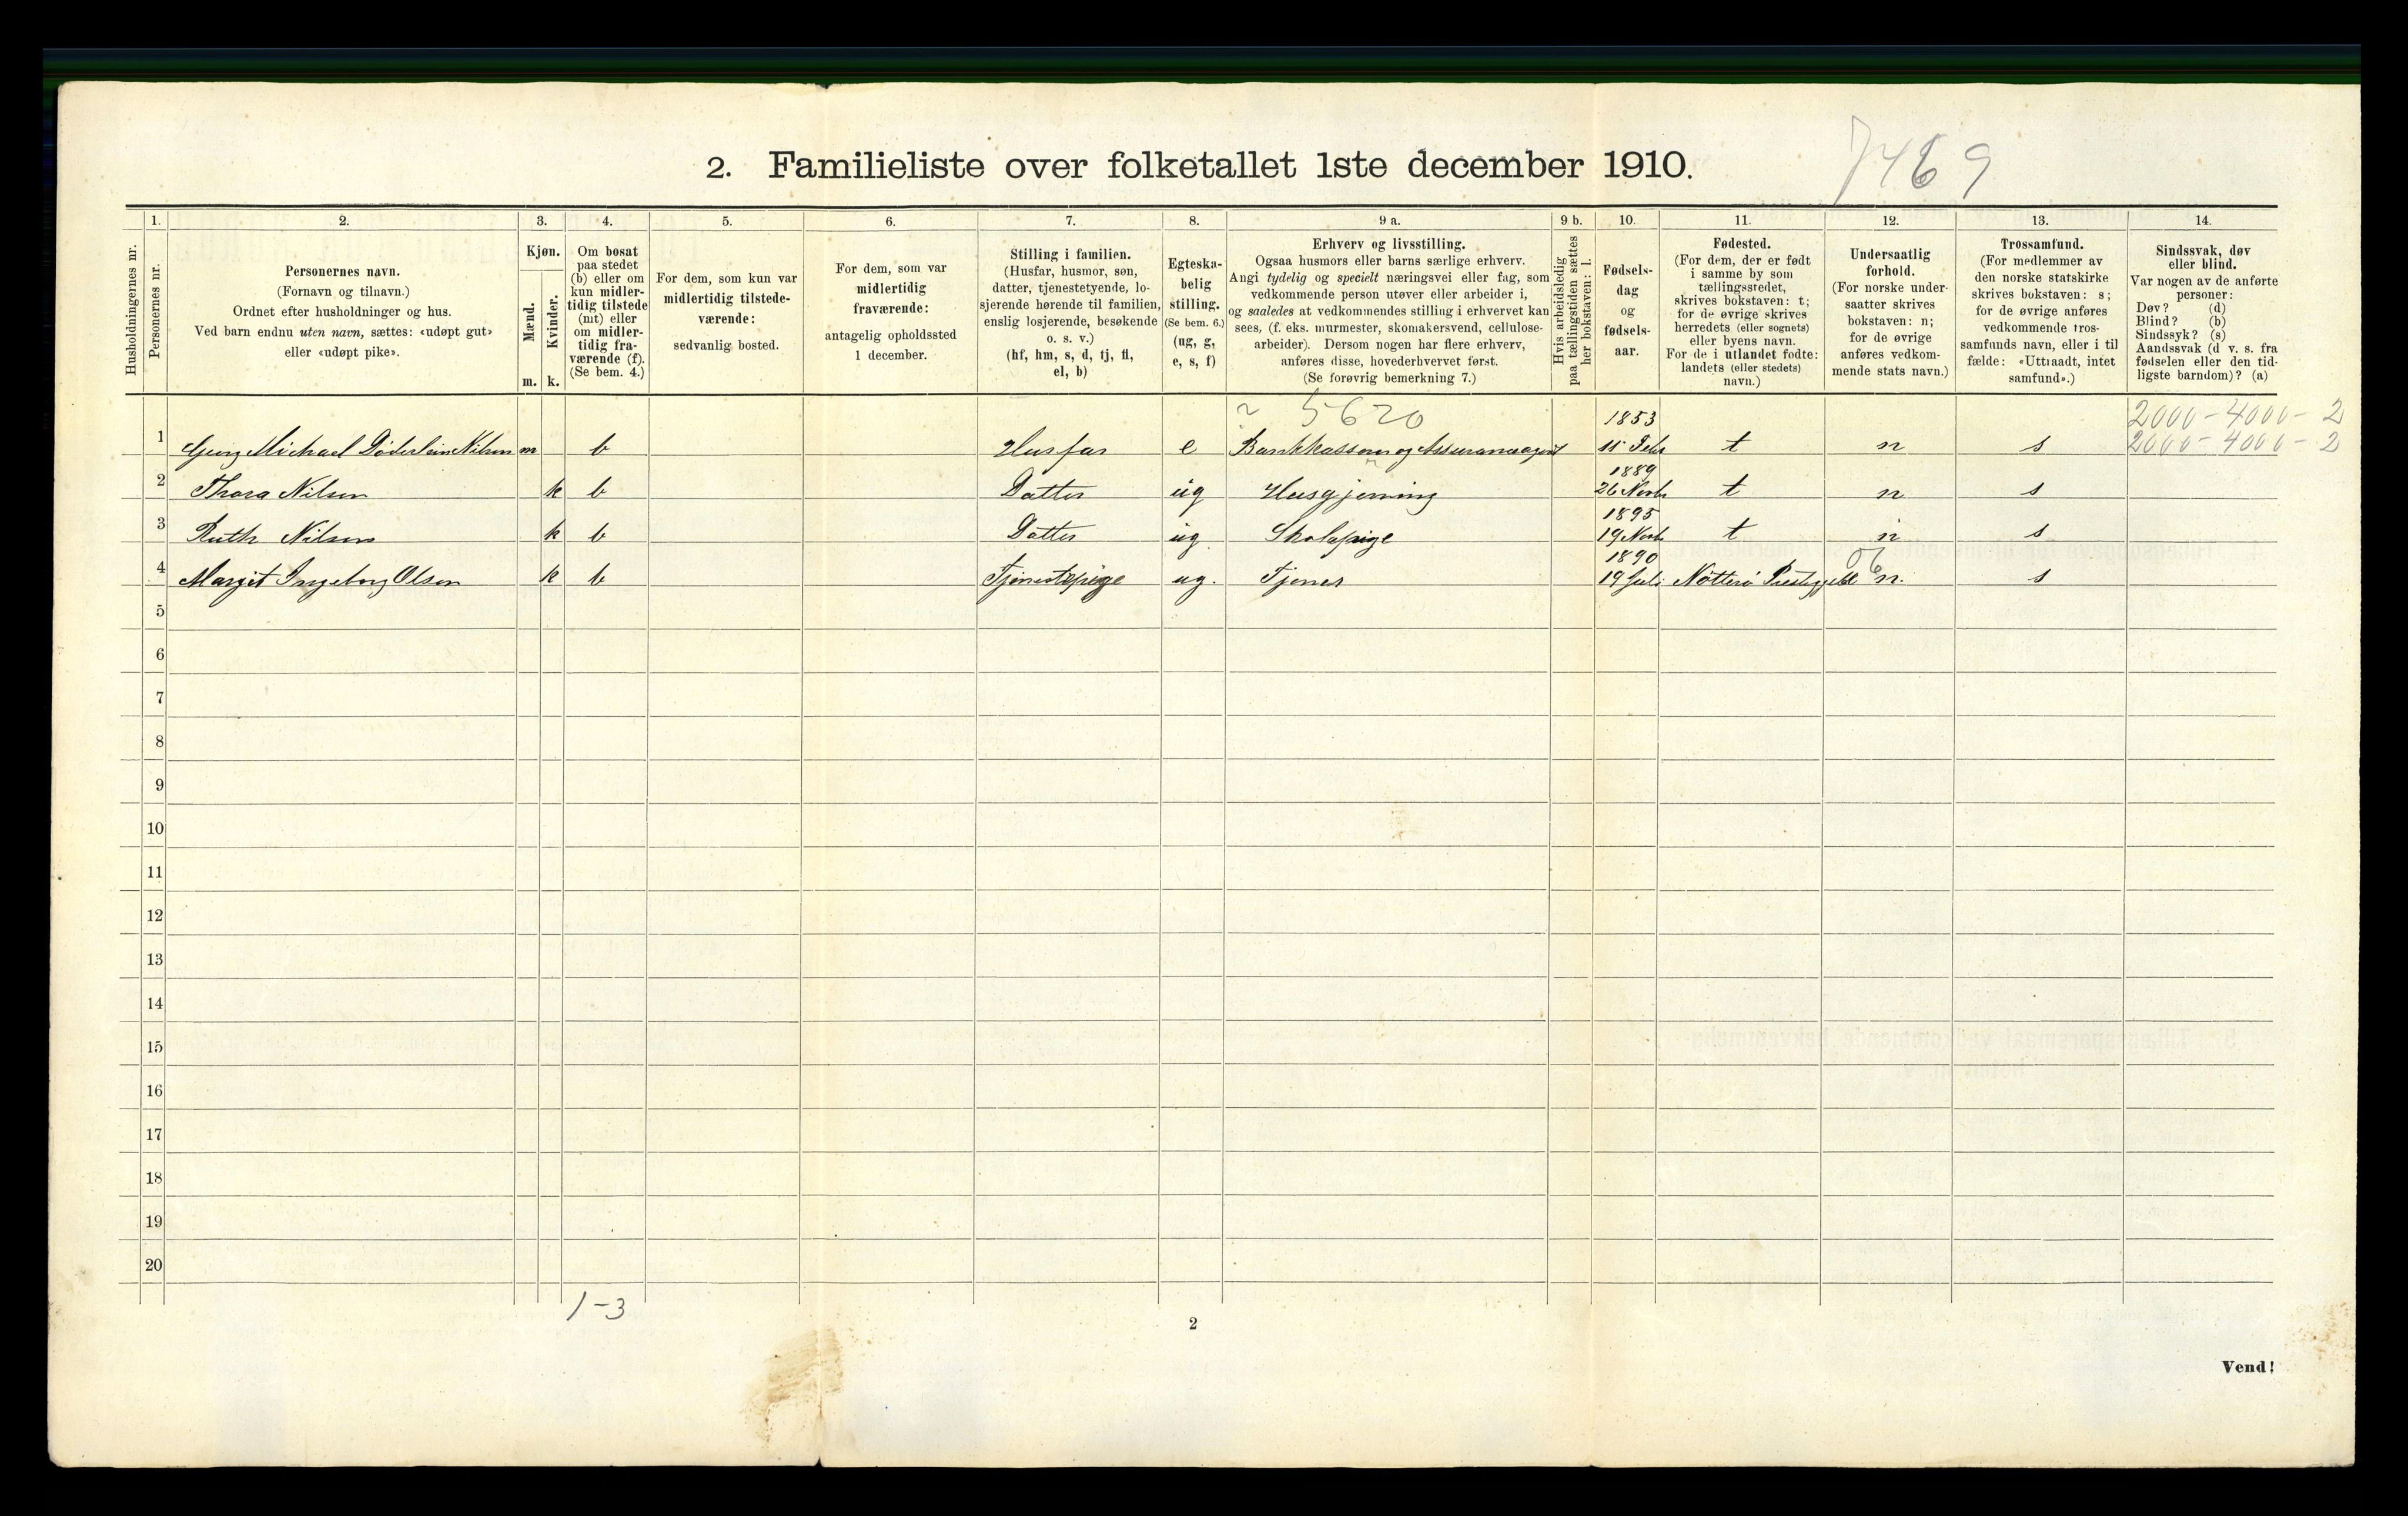 2. Familieliste over folketallet 1ste december 1910.
7469
Husholdningernes nr.
1.
Personernes nr.
2.
Personernes navn.
(Fornavn og tilnavn.)
Ordnet efter husholdninger og hus.
Ved barn endnu uten navn, sættes: «udøpt gut»
eller «udøpt pike».
3.
Kjøn.
Mænd.
Kvinder.
m. k.
4.
Om bosat
paa stedet
(b) eller om
kun midler-
tidig tilstede
(mt) eller
om midler-
tidig fra-
værende (f).
(Se bem. 4.)
5.
For dem, som kun var
midlertidig tilstede-
værende:
sedvanlig bosted.
6.
For dem, som var
midlertidig
fraværende:
antagelig opholdssted
1 december.
7.
Stilling i familien.
(Husfar, husmor, søn,
datter, tjenestetyende, lo-
sjerende hørende til familien,
enslig losjerende, besøkende
o. s. v.)
(hf, hm, s, d, tj, fl,
el, b)
8.
Egteska-
belig
stilling.
(Se bem. 6.)
(ug, g,
e, s, f)
9 a.
Erhverv og livsstilling.
Ogsaa husmors eller barns særlige erhverv.
Angi tydelig og specielt næringsvei eller fag, som
vedkommende person utøver eller arbeider i,
og saaledes at vedkommendes stilling i erhvervet kan
sees, (f. eks. murmester, skomakersvend, cellulose-
arbeider). Dersom nogen har flere erhverv,
anføres disse, hovederhvervet først.
(Se forøvrig bemerkning 7.)
9 b.
Hvis arbeidsledig
paa tællingstiden sættes
her bokstaven: l.
10.
Fødsels-
dag
og
fødsels-
aar.
11.
Fødested.
(For dem, der er født
i samme by som
tællingsstedet,
skrives bokstaven: t;
for de øvrige skrives
herredets (eller sognets)
eller byens navn.
For de i utlandet fødte:
landets (eller stedets)
navn.)
12.
Undersaatlig
forhold.
(For norske under-
saatter skrives
bokstaven: n;
for de øvrige
anføres vedkom-
mende stats navn.)
13.
Trossamfund.
(For medlemmer av
den norske statskirke
skrives bokstaven: s;
for de øvrige anføres
vedkommende tros-
samfunds navn, eller i til
fælde: «Uttraadt, intet
samfund».)
14.
Sindssvak, døv
eller blind.
Var nogen av de anførte
personer:
Døv? (d)
Blind? (b)
Sindssyk? (s)
Aandssvak (d v. s. fra
fødselen eller den tid-
ligste barndom)? (a)
5620 1853 2000-4000-2
1 Georg Michael Döderlein Nilsen m b Husfar e Bankkasserer og Assuranceagent 15 Febr t n s 2000-4000-2
1889
2 Thora Nilsen k b Datter ug Husgjerning 26 Novbr t n s
1895
3 Ruth Nilsen k b Datter ug. Skolepige 19 Novb t n s
1890 06
4 Margit Ingeborg Olsen k b Tjenestepige ug. Tjener 19 Juli Nötterö Præstegjeld n. s
5
6
7
8
9
10
11
12
13
14
15
16
17
18
19
20
1-3
2
Vend!